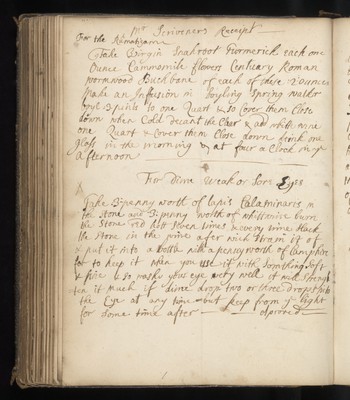 Mr Scriveners Receipt
For the Rhmatizam
Take Virgin Snakroot Turmerick each one
Ounce Cammomile flowers Centuary Roman
wormwood Buckbone of each of these 2 ounces
Make an Infusion in boyling Spring watter
one Quart & so Cover them Close
down when Cold Decant the Cleer & ad white wine
one Quart & Cover them Close down drink one
glass in the morning & at four a Clock in ye
Afternoon
For Dim Weak or Sore Eyes
Take 3 penny worth of Lapis Calaminaris
the stone and 3 penny worth of whitt wine burn
the Stone red hott Seven times & every time Slack
the Stone in the wine after wich Strain it of
& put it into a bottle with a penyworth of Camphire
to keep it when you use it with Something Soft
& fine & so washs your eye very well it will Strength
ten it much if dime drop two or three drops into
the Eye at any time but keep from ye light
for some time after